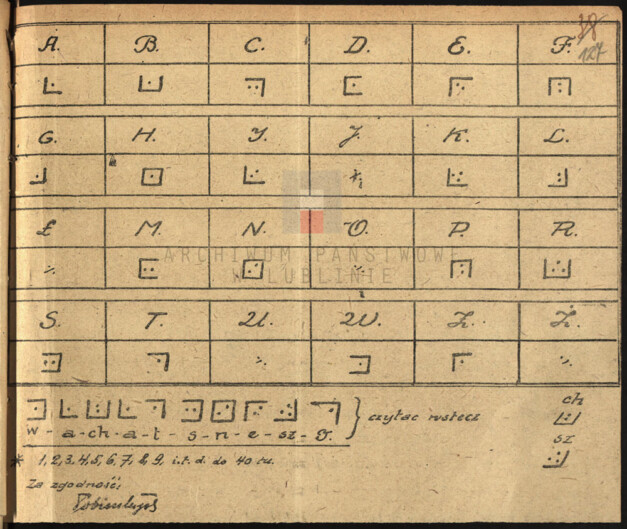 28
127
A. B. C. D. E. F.
G. H. Y. J. K. L.
*
Ł M. N. O. P. R.
ARCHIWUM PAŃSTWOWE
W LUBLINIE
S. T. U. W. Z. Ż.
ch
czytać wstecz
w - a - ch - a - t - s - n - e - sz - O.
sz
* 1, 2, 3, 4, 5, 6, 7, 8, 9, i.t.d. do 40 tu.
Za zgodność: